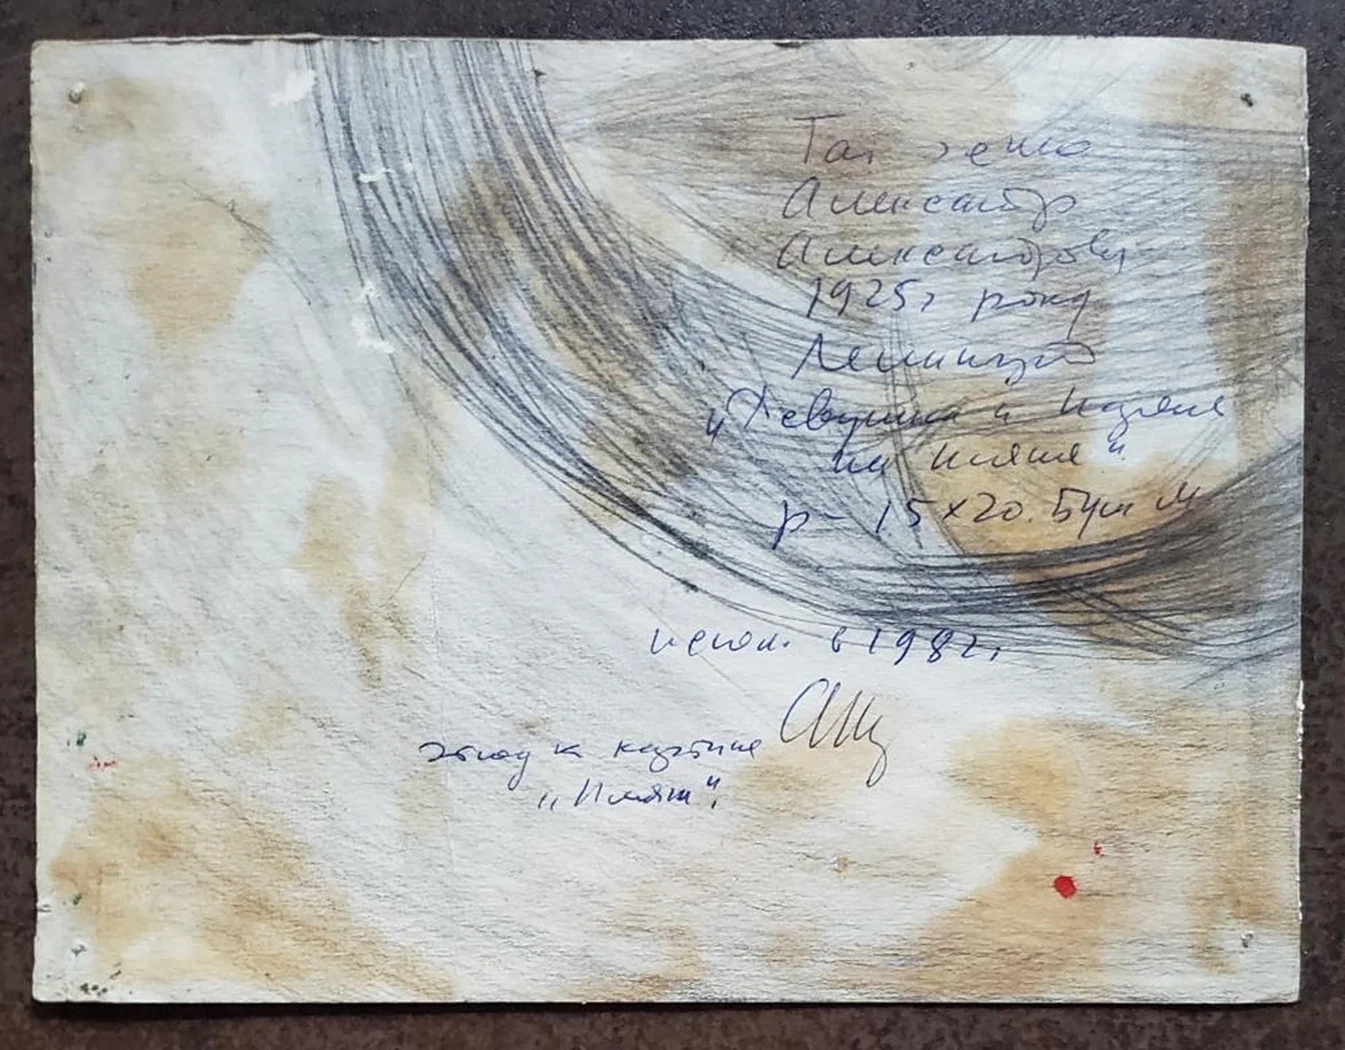 Александр
Александрович
1925г рожд
Ленинград
"Девушка и парень
на пляже"
р- 15х20. Бум М
испол. в 198 г.
этюд к картине
"Пляж".